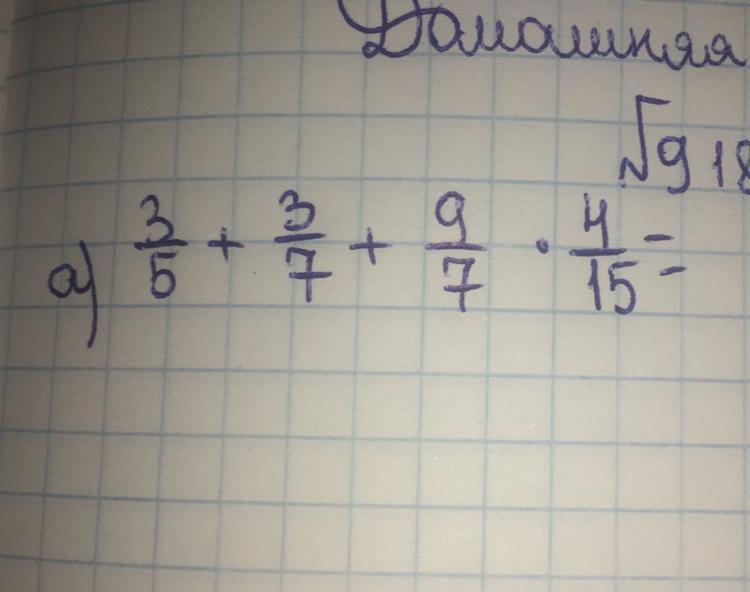 Домашняя
√918
а) 3/5 + 3/7 + 9/7 · 4/15 =